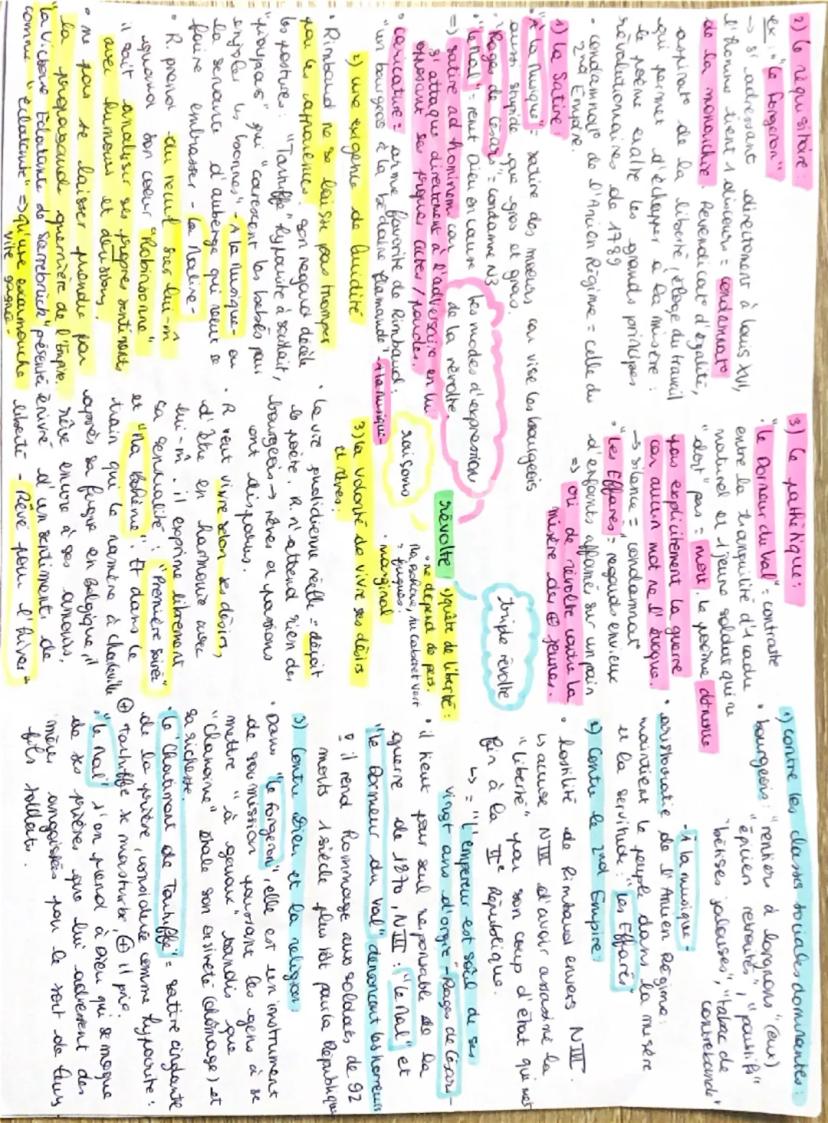 1) Contre les classes sociales dominantes :
• bourgeois : "rentiers à lorgnons" (eux)
"épiciers retraités", "pantifs"
"bêtises jalouses", "tabac de
contrebande"
- A la musique -
• aristocratie de l'Ancien Régime :
maintient le peuple dans la misère
et la servitude : "Les Effarés"
2) Contre le 2nd Empire
• hostilité de Rimbaud envers N III.
↳ accuse N III d'avoir assassiné la
"liberté" par son coup d'état qui met
fin à la IIe République.
↳ = "L'empereur est soûl de ses
vingt ans d'orgie" - Rages de César -
• il tient pour seul responsable de la
guerre de 1870, N III : "Le Mal" et
"Le Dormeur du Val" dénoncent les horreurs
• il rend hommage aux soldats de 92
morts 1 siècle plus tôt pour la République
3) Contre Dieu et la religion
• Dans "le forgeron", elle est un instrument
de soumission poussant les gens à se
mettre "à genoux" tandis que
"Chanoine" étale son oisiveté (chômage) et
sa richesse.
• "Le Châtiment de Tartuffe" = satire cinglante
de la prière, considérée comme hypocrite :
⊕ Tartuffe se masturbe, ⊕ il prie.
• "Le Mal" s'en prend à Dieu qui se moque
de ses prières que lui adressent des
mères angoissées par le sort de leurs
fils soldats.
triple révolte
révolte
saisons
les modes d'expression
de la révolte
1) quête de liberté :
• ne dépend de pers.
• fugues :
Ma Bohème, Au Cabaret Vert
• marginal
3) la volonté de vivre ses désirs
et rêves.
• La vie quotidienne réelle = déçoit
le poète. R. n'attend rien des
bourgeois → rêves et passions
ont disparus.
• R veut vivre selon ses désirs,
d'être en harmonie avec
lui-m̂. Il exprime librement
sa sensualité : "Première soirée"
et "Ma Bohème". Et dans le
train qui le ramène à Charleville
après sa fugue en Belgique, il
rêve encore à ses amours,
énivré d'un sentiment de
liberté - Rêvé pour l'hiver -
3) Le pathétique :
• "Le Dormeur du Val" = contraste
entre la tranquilité d'1 cadre
naturel et 1 jeune soldat qui ne
"dort" pas = mort. Le poème dénonce
pas explicitement la guerre
car aucun mot ne l'évoque.
→ silence = condamnat°
• "Les Effarés" : regards envieux
d'enfants affamé sur un pain
⇒ cri de révolte contre la
misère des ⊕ jeunes.
2) le réquisitoire :
ex : "Le Forgeron"
→ s'adressant directement à Louis XVI,
l'homme tient 1 discours = condamnat°
de la monarchie. Revendicat° d'égalité,
aspirat° de la liberté, éloge du travail
qui permet d'échapper à la misère :
le poème exalte les grands principes
révolutionnaires de 1789
• condamnat° de l'Ancien Régime = celle du
2nd Empire.
1) la Satire :
"A la musique" : satire des mœurs car vise les bourgeois
aussi stupide que gros et gras.
• "Rages de César" = condamne N3
• "Le Mal" = remet Dieu en cause
⇒ satire ad hominem car
s'attaque directement à l'adversaire en lui
opposant ses propres actes/paroles.
• caricature = arme favorite de Rimbaud :
"un bourgeois à la bedaine flamande" - A la musique -
2) une exigence de lucidité
• Rimbaud ne se laisse pas tromper
par les apparences. Son regard décèle
les postures : "Tartuffe" hypocrite à souhait,
"pioupious" qui "caressent les bébés pour
enjôler les bonnes" - A la musique - ou
la servante d'auberge qui veut se
faire embrasser - La Maline -
• R. prend du recul sur lui-m̂
quand son cœur "Robinsonne"
il sait analyser ses propres sentiments
avec humour et dérision.
• ne pas se laisser prendre par
la propagande guerrière de l'Empire.
"La Victoire Eclatante de Sarrebrück" présenté
comme "éclatante" ⇒ qu'une escarmouche
vite gagné -